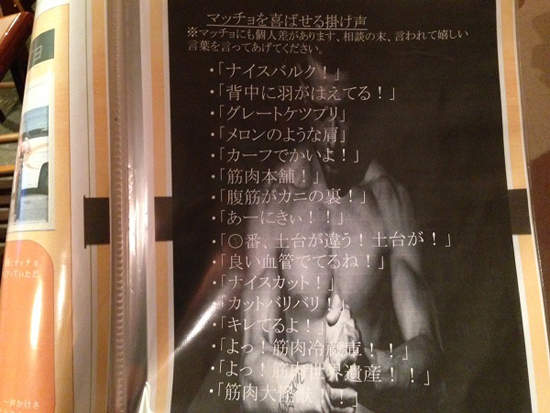 マッチョを喜ばせる掛け声
※マッチョにも個人差があります、相談の末、言われて嬉しい
言葉を言ってあげてください。
・「ナイスバルク！」
・「背中に羽がはえてる！」
・「グレートケツプリ」
・「メロンのような肩」
・「カーフでかいよ！」
・「筋肉本舗！」
・「腹筋がカニの裏！」
・「あーにきぃ！！」
・「〇番、土台が違う！土台が！」
・「良い血管でてるね！」
・「ナイスカット！」
・「カットバリバリ！」
・「キレてるよ！」
・「よっ！筋肉冷蔵庫！！」
・「よっ！筋肉世界遺産！！」
・「筋肉大怪獣！」